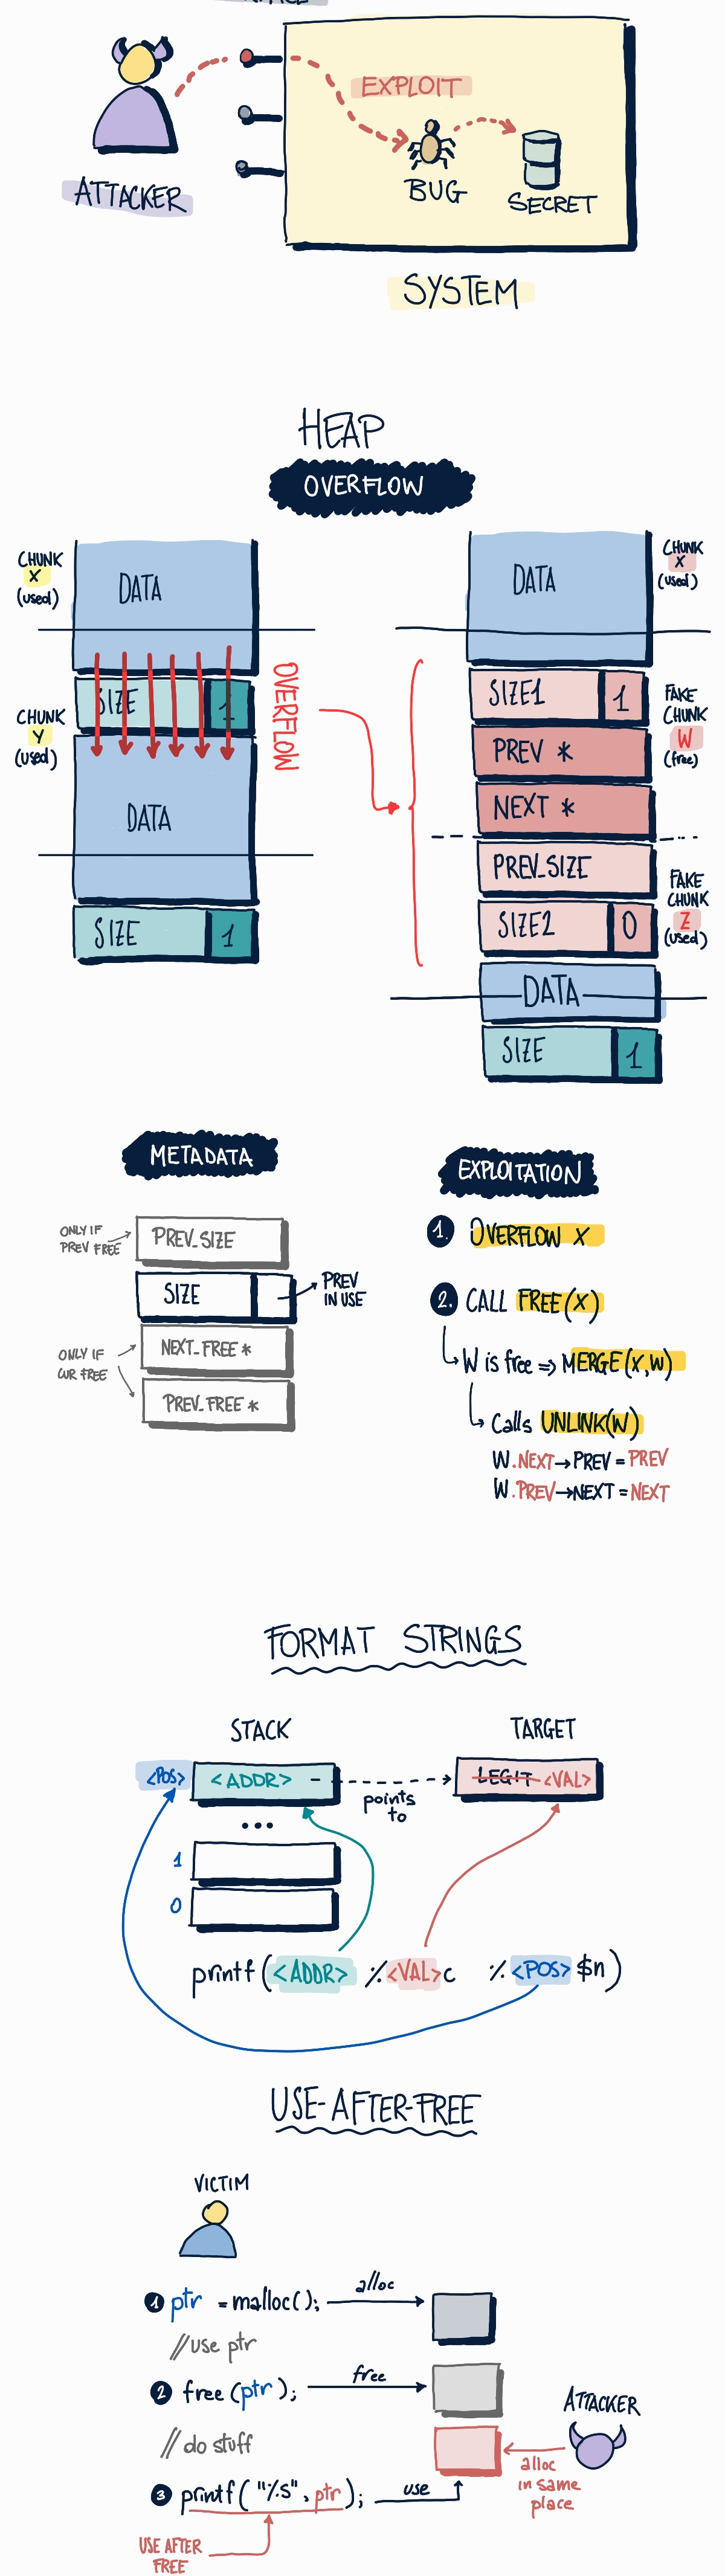 EXPLOIT
BUG
SECRET
ATTACKER
SYSTEM
HEAP
OVERFLOW
CHUNK
X
(used)
DATA
SIZE
1
OVERFLOW
CHUNK
Y
(used)
DATA
SIZE
1
DATA
CHUNK
X
(used)
SIZE1
1
FAKE
CHUNK
W
(free)
PREV *
NEXT *
PREV_SIZE
SIZE2
0
FAKE
CHUNK
Z
(used)
DATA
SIZE
1
METADATA
ONLY IF
PREV FREE
PREV_SIZE
SIZE
PREV
IN USE
ONLY IF
CUR FREE
NEXT_FREE *
PREV_FREE *
EXPLOITATION
1. OVERFLOW X
2. CALL FREE(X)
W is free => MERGE(X,W)
Calls UNLINK(W)
W.NEXT→PREV = PREV
W.PREV→NEXT = NEXT
FORMAT STRINGS
STACK
TARGET
<POS>
<ADDR>
points
to
LEGIT <VAL>
...
1
0
printf(<ADDR> %<VAL>c %<POS>$n)
USE-AFTER-FREE
VICTIM
1 ptr = malloc();
alloc
//use ptr
2 free(ptr);
free
ATTACKER
//do stuff
alloc
in same
place
3 printf("%s", ptr);
use
USE AFTER
FREE